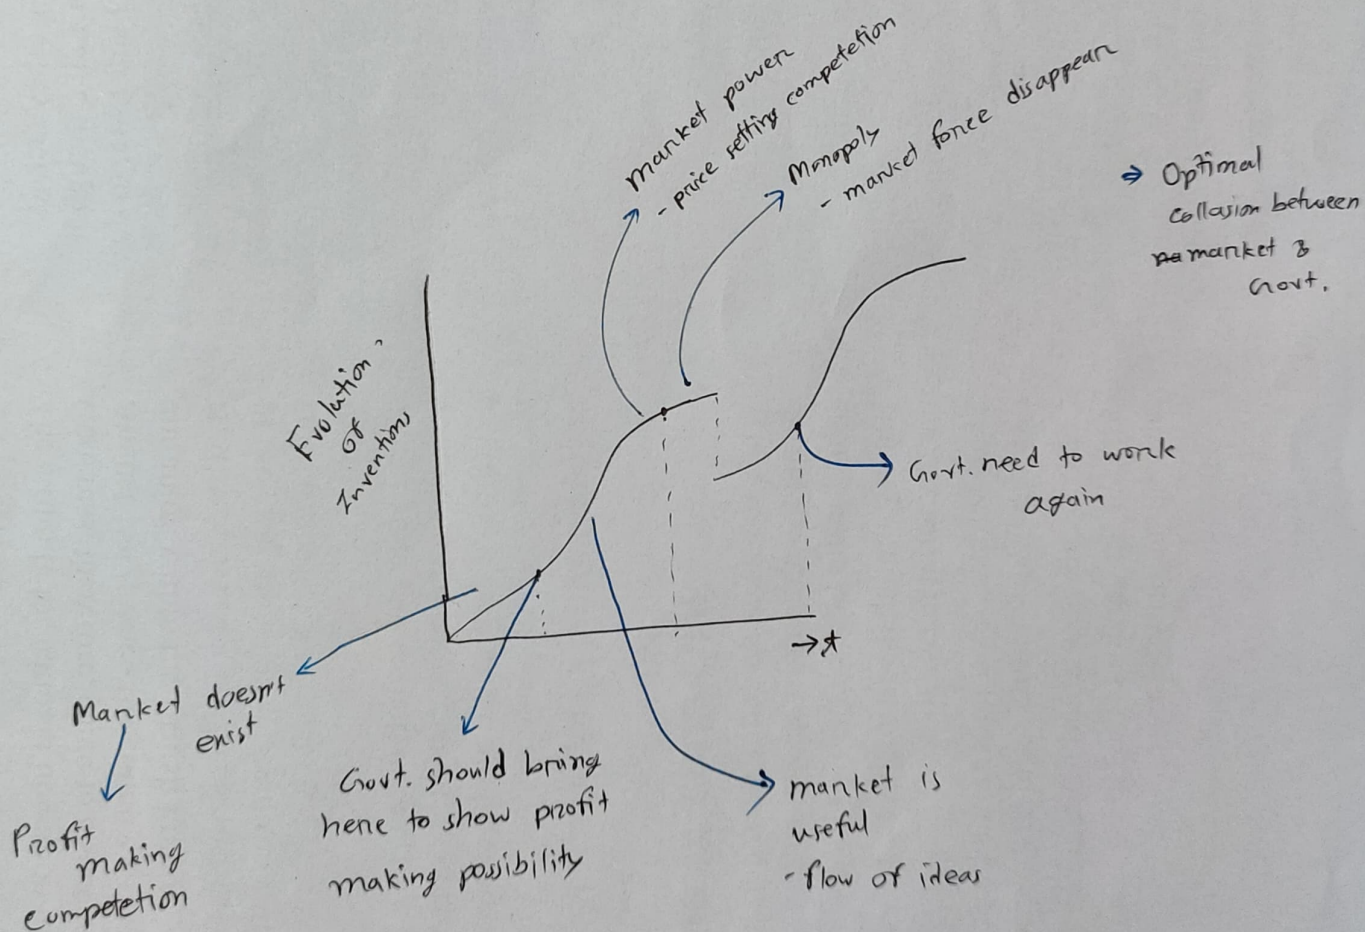 market power
- price setting competetion
Monopoly
- market force disappear
⇒ Optimal
collasion between
market &
Govt.
Evolution
of
Inventions
Govt. need to work
again
→ t
Market doesn't
exist
Profit
making
competetion
Govt. should bring
here to show profit
making possibility
market is
useful
- flow of ideas